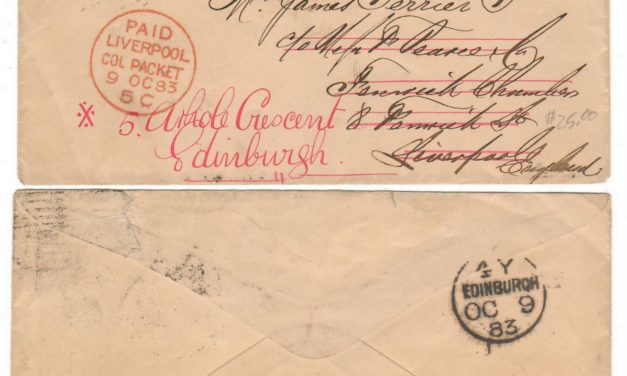 Mr. James Ferrier J
PAID
LIVERPOOL
COL PACKET
9 OC 83
5 C
c/o Messrs Pearce & Co
Fenwick Chambers
8 Fenwick St
Liverpool
England
$25.00
5. Athole Crescent
Edinburgh.
Y
EDINBURGH
OC 9
83